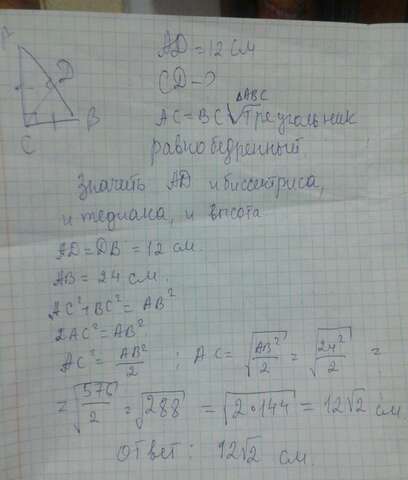 A
D
B
C
AD = 12 см
CD - ?
△ABC
AC = BC √ Треугольник
равнобедренный.
Значить AD и биссектриса,
и медиана, и высота
AD = DB = 12 см.
AB = 24 см.
AC² + BC² = AB²
2AC² = AB²
AC² = AB²/2 ; AC = √(AB²/2) = √(24²/2) =
= √(576/2) = √288 = √(2·144) = 12√2 см.
Ответ: 12√2 см.